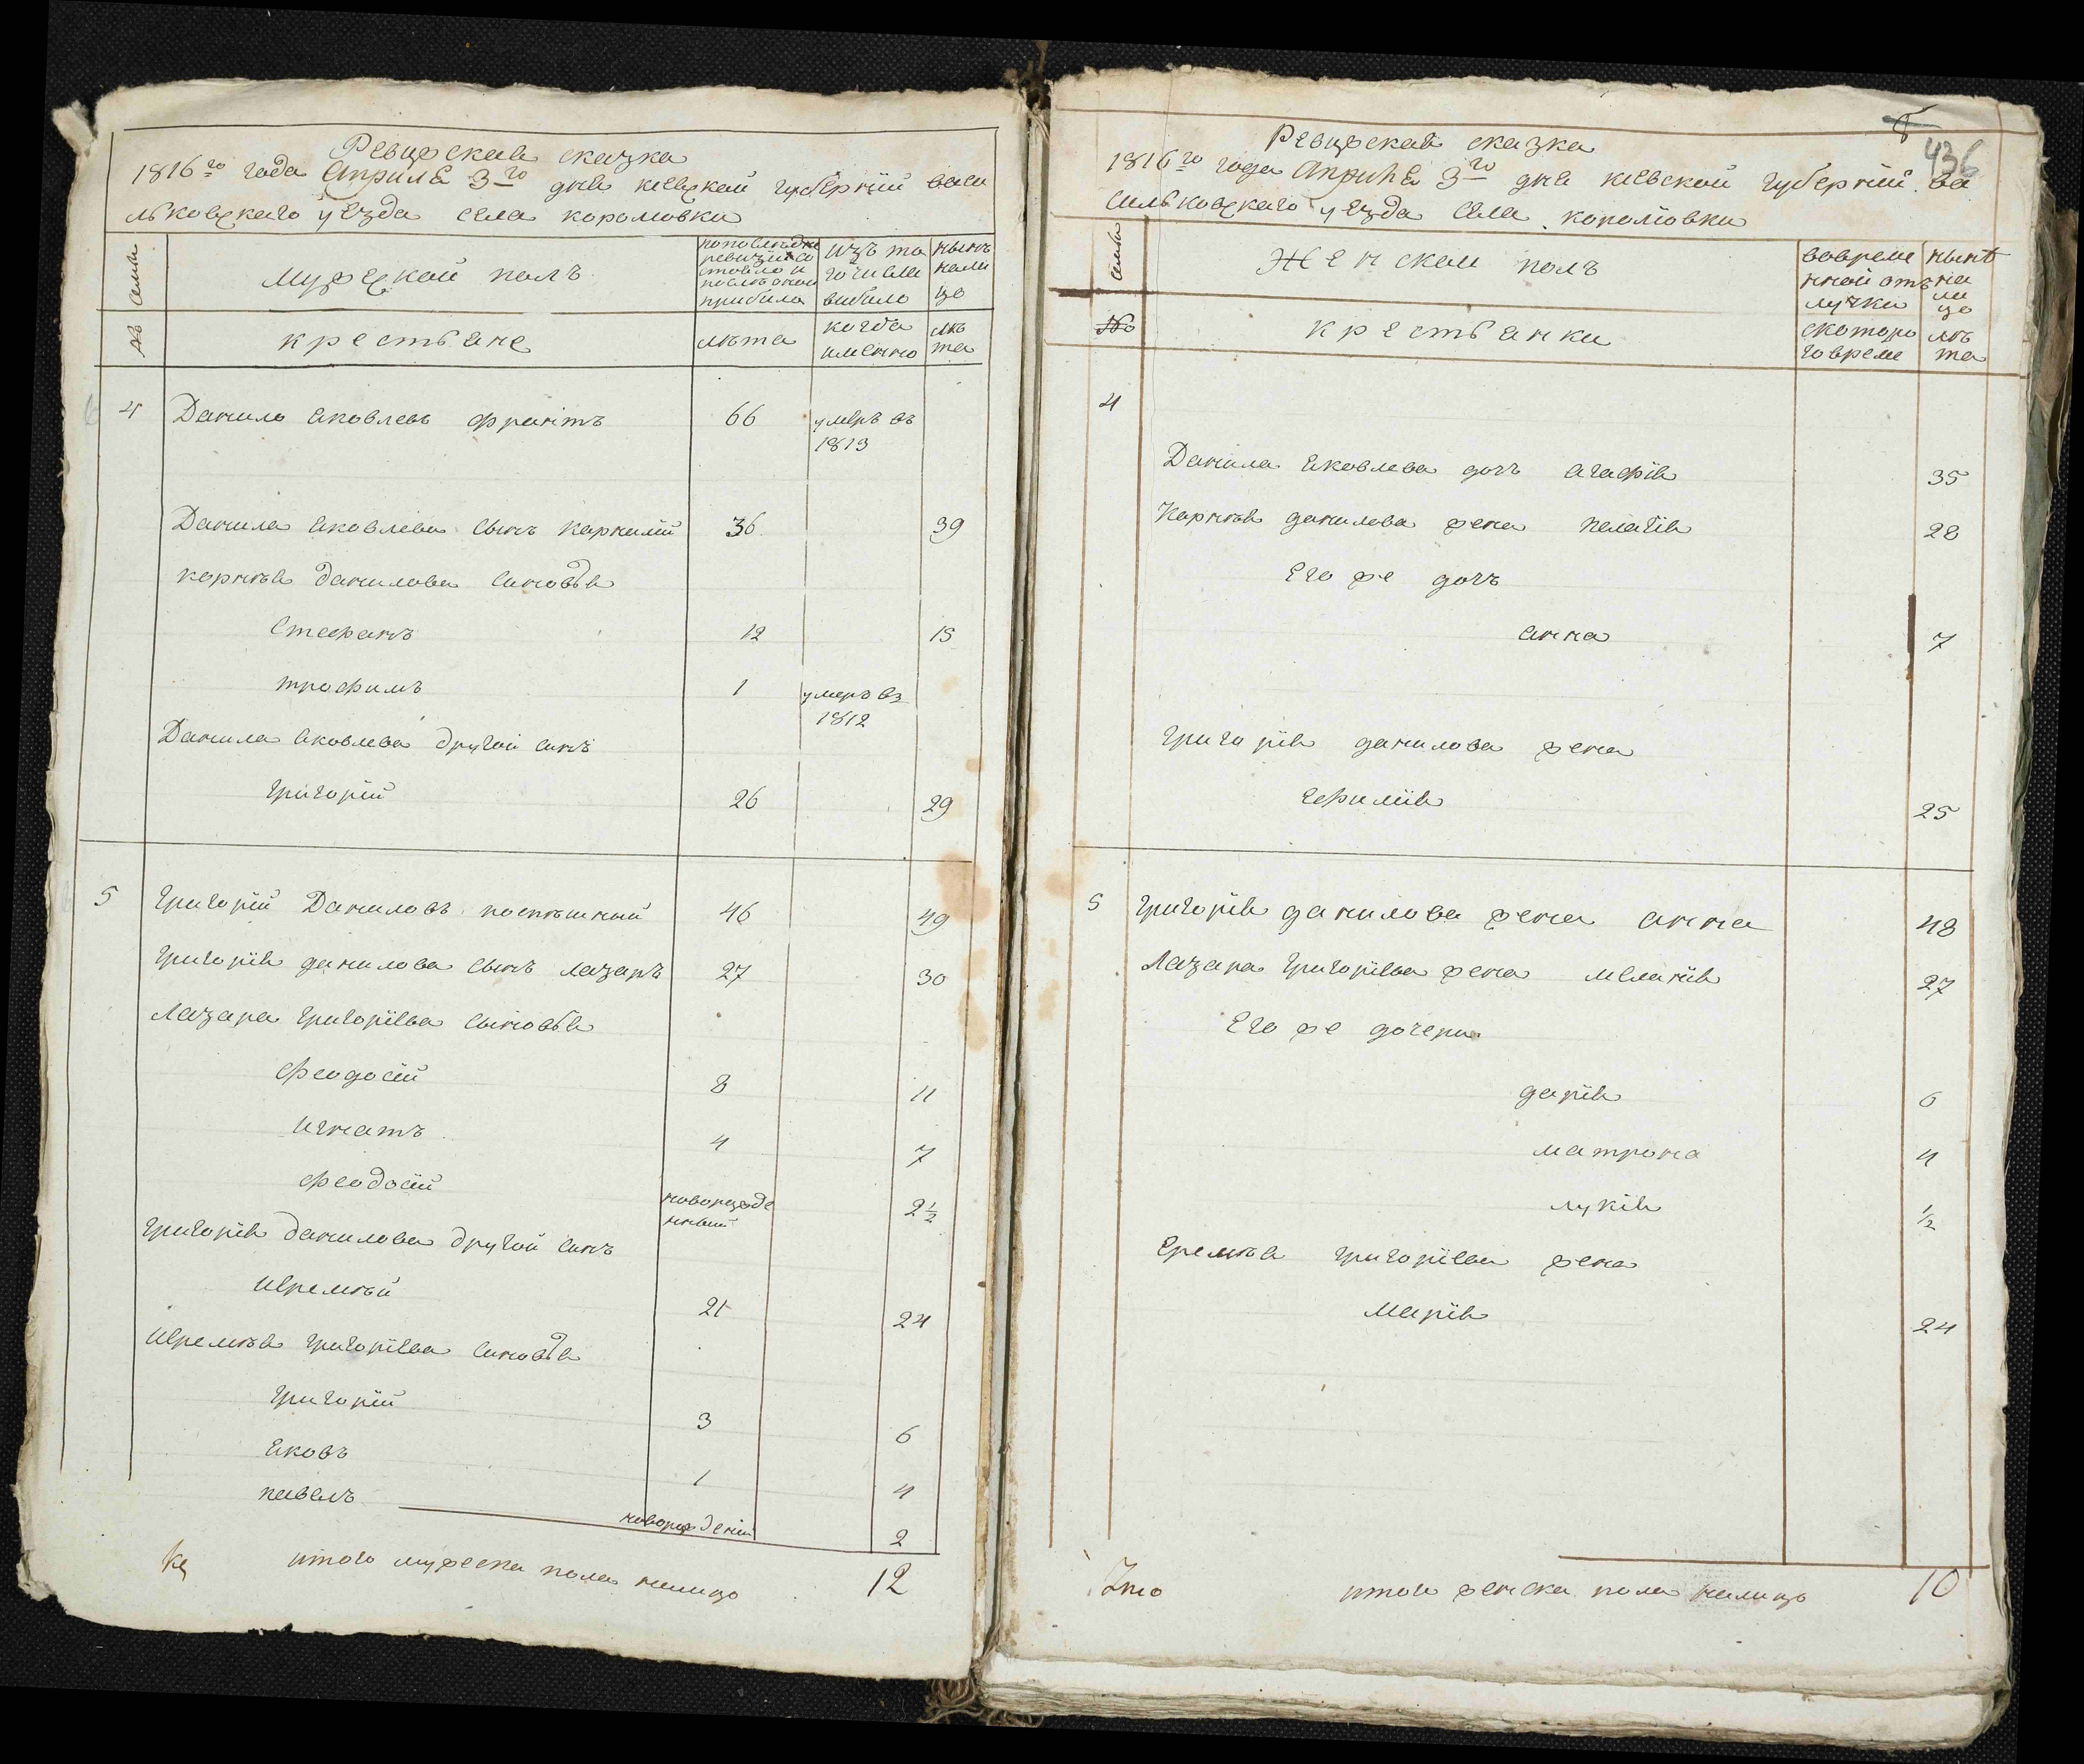 Ревизская сказка
1816го года Априля 3го дня киевской губернии васи
льковскаго уезда села королювки
семьи
Мужеской полъ
по последней ревизии состояло и после оной прибыло
изъ того числа выбыло
нынѣ на лицо
№
крестьяне
лѣта
когда именно
лѣта
4 Данило Яковлевъ 66 умеръ въ 1813
Данила Яковлева сынъ Карнилий 36 39
корнѣя данилова синовья
Стефанъ 12 15
трофимъ 1 умеръ въ 1812
Данила Яковлева другой синъ
григорій 26 29
5 григорій Даниловъ 46 49
григорія данилова сынъ лазаръ 27 30
Лазара григоріева сыновья
феодосій 8 11
игнатъ 4 7
феодосій новорожденный 2½
григорія данилова другой синъ
иеремѣй 21 24
иеремѣя григоріева синовья
григорій 3 6
яковъ 1 4
павелъ новорожденій 2
итого мужеска пола налицо 12
8
436
Ревизская сказка
1816го года Априля 3го дня киевской губерніи ва
сильковскаго уезда села королювки
семьи
Женскаи полъ
во временной отлучки
нынѣ на лицо
№
крестьянки
с котораго време
лѣта
4
Данила Яковлева дочь агафія 35
Карнѣя данилова жена пелагія 28
Его же дочъ
анна 7
григорія данилова жена
Ефимія 25
5 григорія данилова жена анна 48
Лазара григоріева жена меланія 27
Его же дочери
дарія 6
матрона 4
лукія ½
Еремѣя григоріева жена
Марія 24
итого женска пола налицо 10